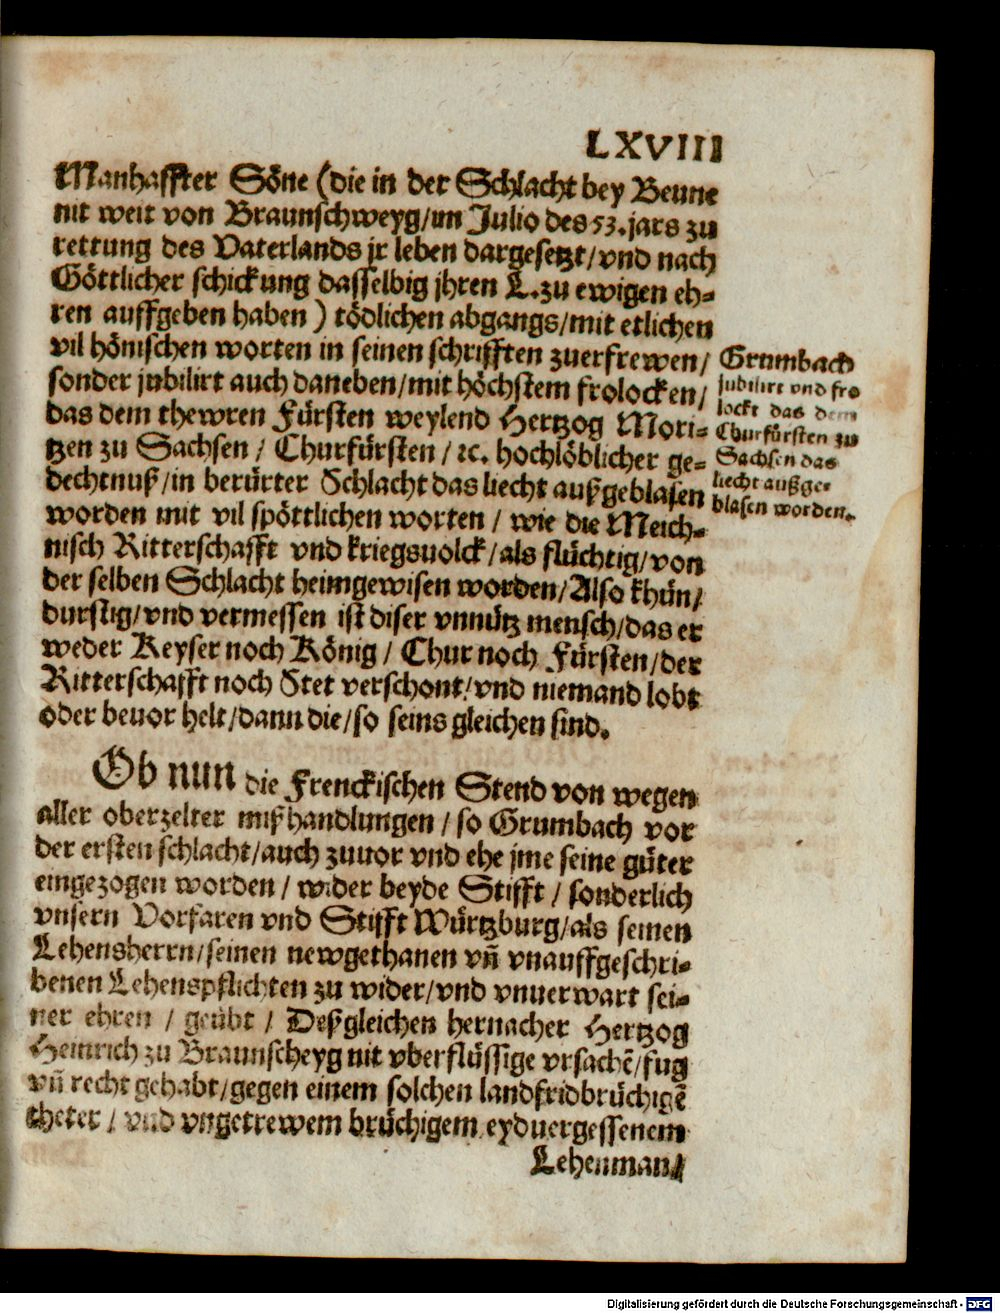 LXVIII
Manhaffter Söne (die in der Schlacht bey Beune
nit weit von Braunschweyg/im Julio des 53. jars zu
rettung des Vaterlands jr leben dargesetzt/vnd nach
Göttlicher schickung dasselbig jhren L. zu ewigen eh-
ren auffgeben haben ) tödlichen abgangs/mit etlichen
vil hönischen worten in seinen schrifften zuerfrewen/
sonder jubilirt auch daneben/mit höchstem frolocken/
das dem thewren Fürsten weylend Hertzog Mori-
tzen zu Sachsen / Churfürsten / ꝛc. hochlöblicher ge-
dechtnuß/in berürter Schlacht das liecht außgeblasen
worden mit vil spöttlichen worten / wie die Meich-
nisch Ritterschafft vnd kriegsuolck/als flüchtig/von
der selben Schlacht heimgewisen worden/Also khün/
durstig/vnd vermessen ist diser vnnütz mensch/das er
weder Keyser noch König / Chur noch Fürsten/der
Ritterschafft noch Stet verschont/vnd niemand lobt
oder beuor helt/dann die/so seins gleichen sind.
Grumbach
jubilirt vnd fro
lockt das dem
Churfürsten zu
Sachsen das
liecht außge-
blasen worden.
Ob nun die Frenckischen Stend von wegen
aller oberzelter mißhandlungen / so Grumbach vor
der ersten schlacht/auch zuuor vnd ehe jme seine güter
eingezogen worden / wider beyde Stifft / sonderlich
vnsern Vorfaren vnd Stifft Würtzburg/als seinen
Lehensherrn/seinen newgethanen vñ vnauffgeschri-
benen Lehenspflichten zu wider/vnd vnuerwart sei-
ner ehren / geübt / Deßgleichen hernacher Hertzog
Heinrich zu Braunscheyg nit vberflüssige vrsachẽ/fug
vñ recht gehabt/gegen einem solchen landfridbrüchigẽ
theter / vnd vngetrewem brüchigem eyduergessenem
Lehenman/
Digitalisierung gefördert durch die Deutsche Forschungsgemeinschaft - DFG